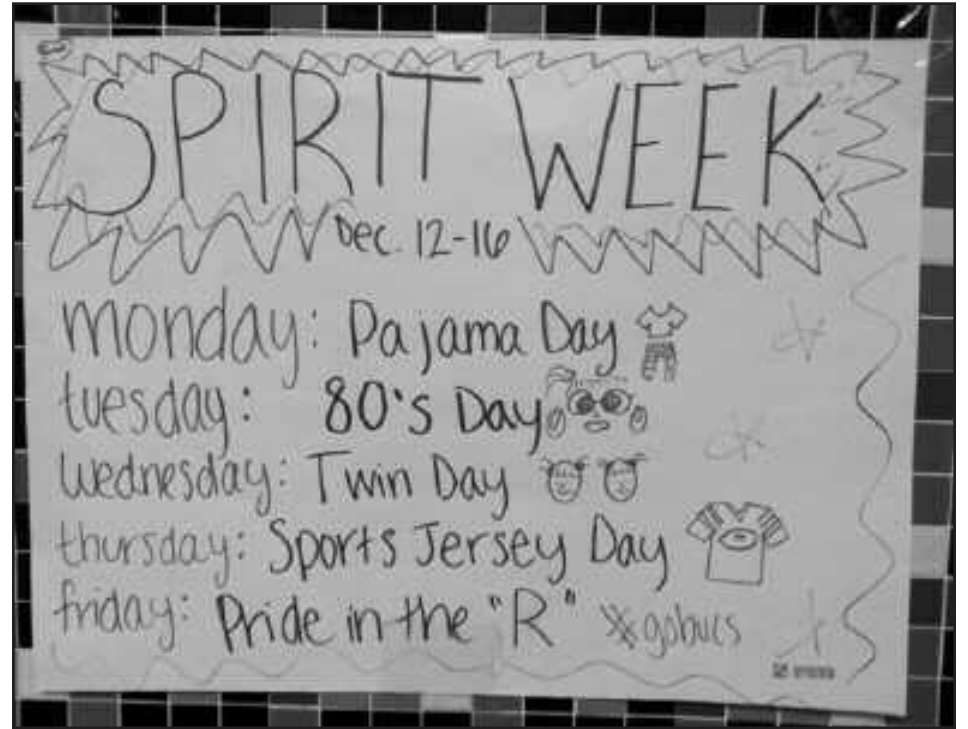 SPIRIT WEEK
Dec. 12-16
monday: Pajama Day
tuesday: 80's Day
Wednesday: Twin Day
thursday: Sports Jersey Day
friday: Pride in the "R" #gobucs